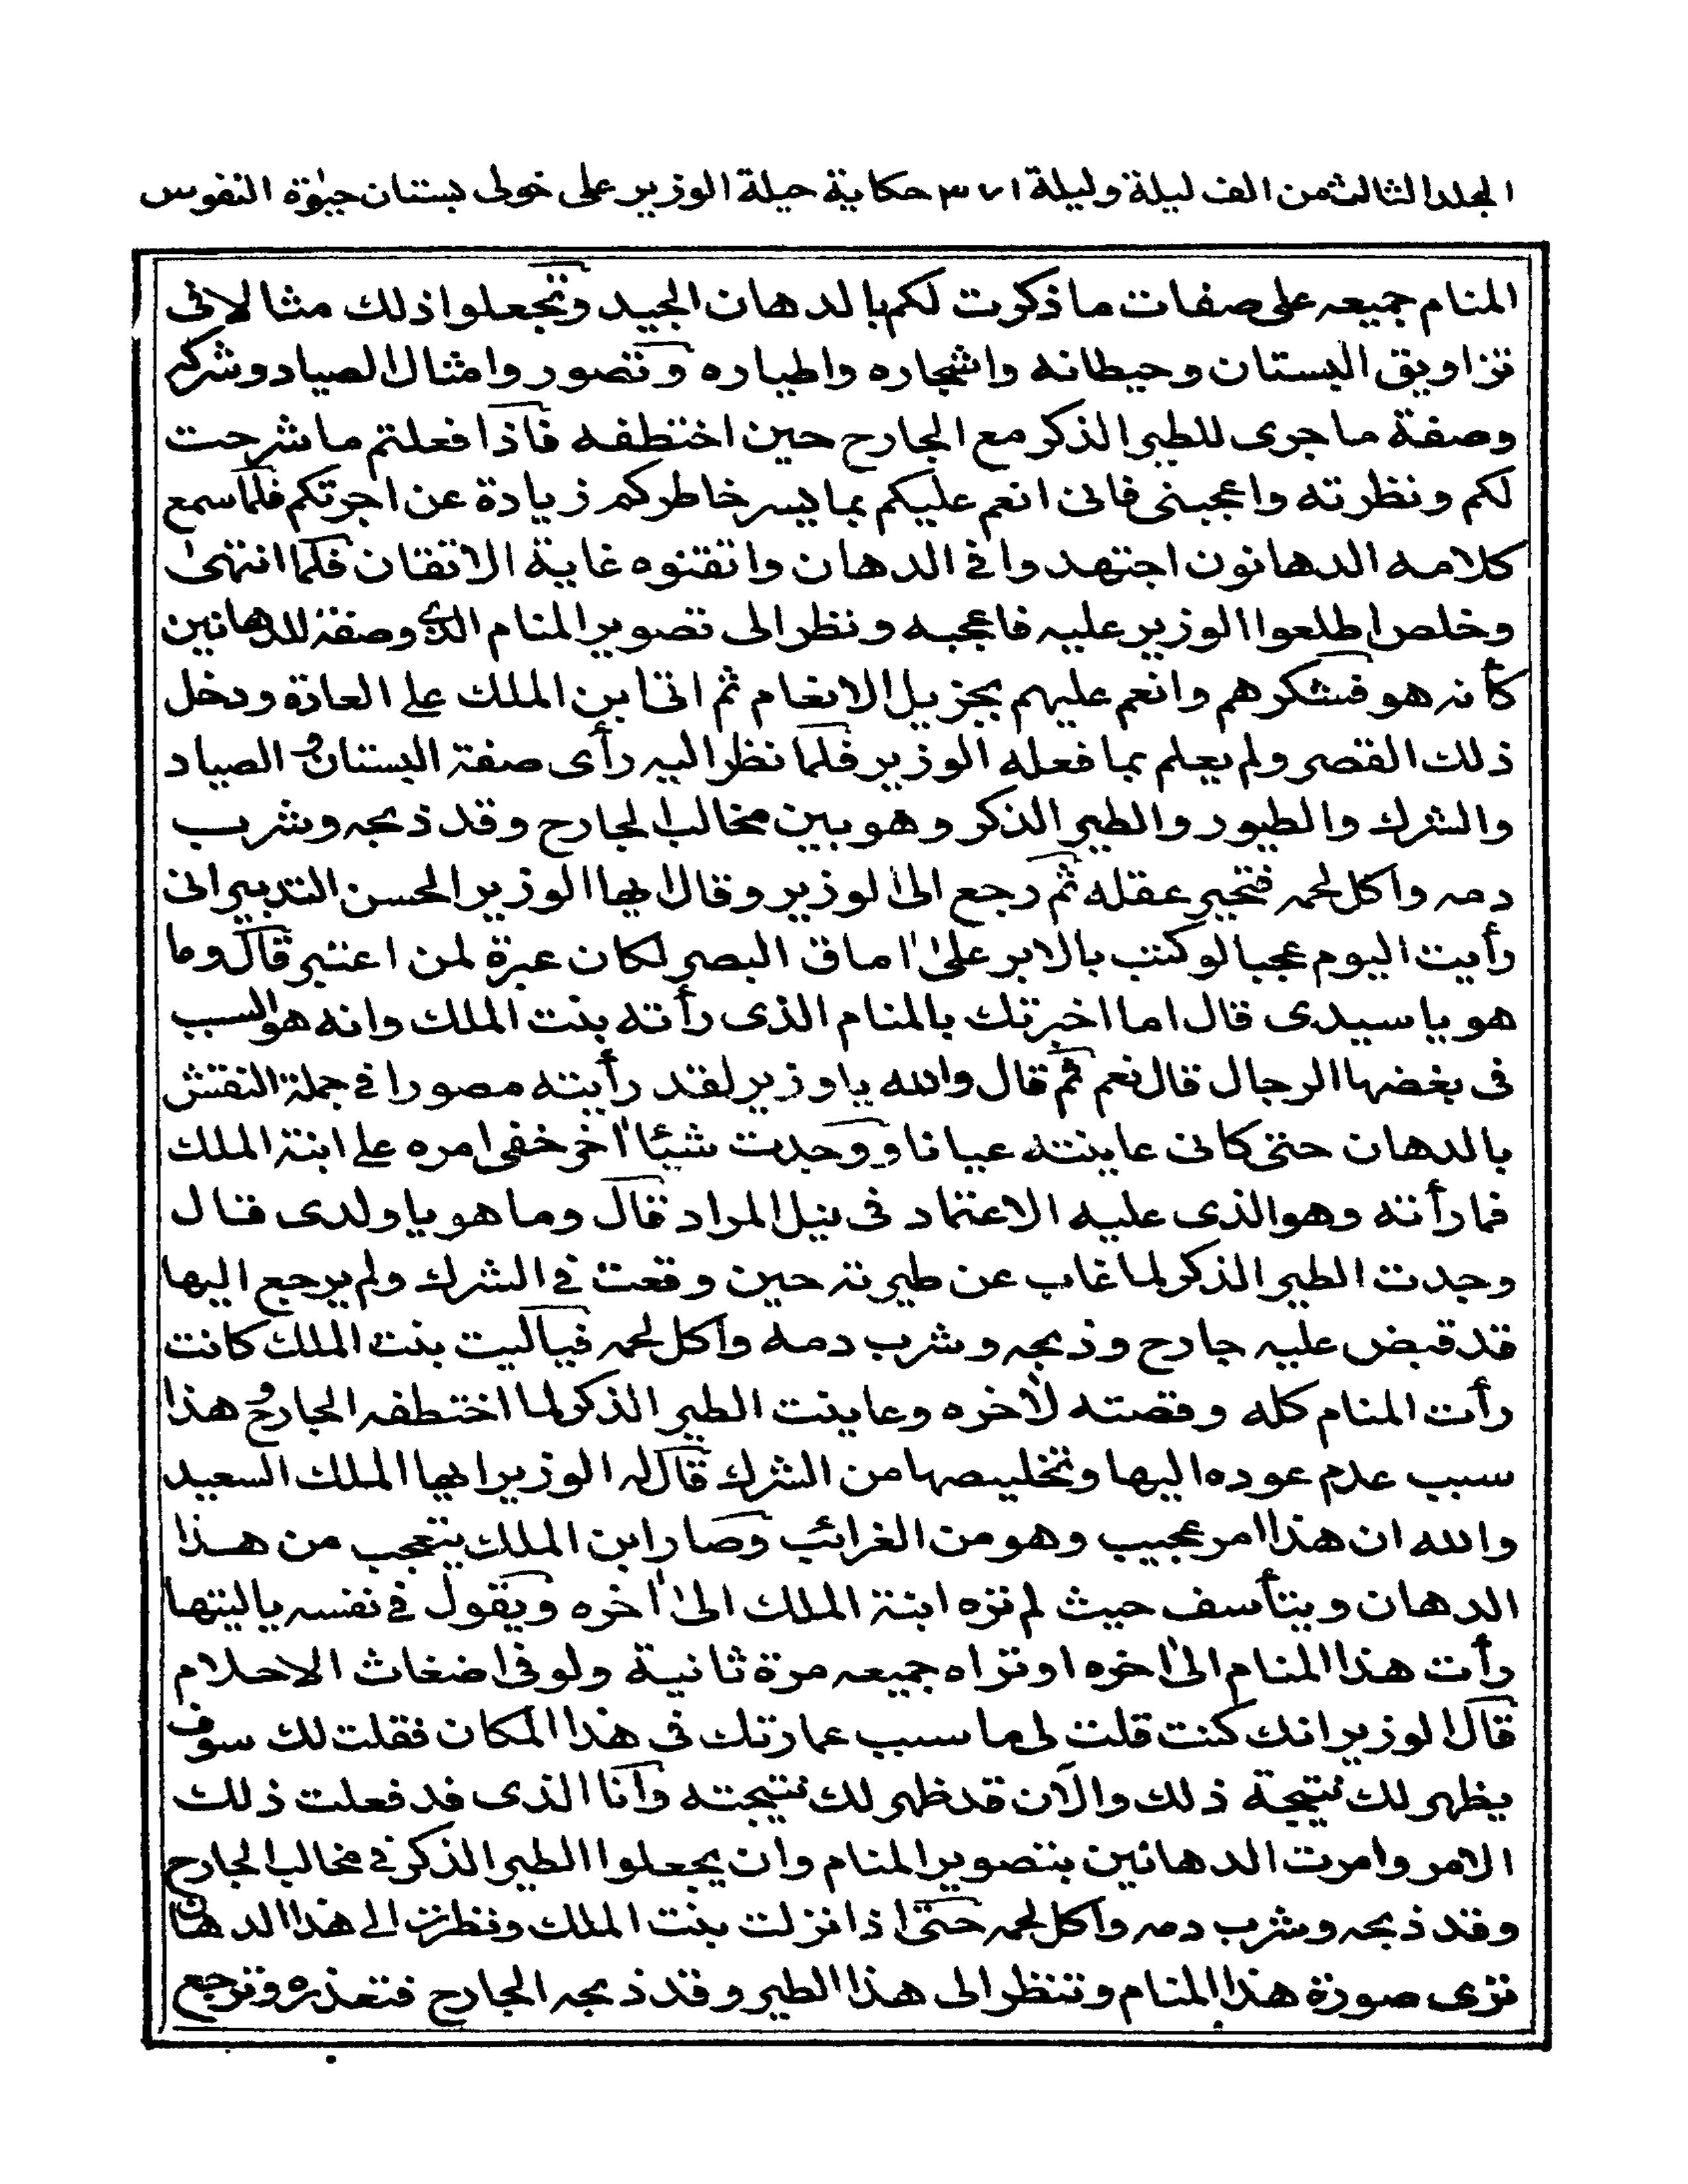 المجلد الثالث من الف ليلة وليلة ٣٧١ حكاية حيلة الوزير على خولى بستان حيوة النفوس
المنام جميعه على صفات ما ذكرت لكم بالدهان الجيد وتجعلوا ذلك مثالا فى
تزاويق البستان وحيطانه واشجاره واطياره وتصوروا مثال الصياد وشركه
وصفة ما جرى للطير الذكر مع الجارح حين اختطفه فاذا فعلتم ما شرحت
لكم ونظرته واعجبنى فانى انعم عليكم بما يسر خاطركم زيادة عن اجرتكم فلما سمع
كلامه الدهانون اجتهدوا فى الدهان واتقنوه غاية الاتقان فلما انتهى
وخلص اطلعوا الوزير عليه فاعجبه ونظر الى تصوير المنام الذى وصفة للدهانين
كأنه هو فشكرهم وانعم عليهم بجزيل الانعام ثم اتى ابن الملك على العادة ودخل
ذلك القصر ولم يعلم بما فعله الوزير فلما نظر اليه رأى صفة البستان و الصياد
والشرك والطيور والطير الذكر وهو بين مخالب الجارح وقد ذبحه وشرب
دمه واكل لحمه فتحير عقله ثم رجع الى الوزير وقال ايها الوزير الحسن التدبير انى
رأيت اليوم عجبا لو كتب بالابر على اماق البصر لكان عبرة لمن اعتبر قال وما
هو يا سيدى قال اما اخبرتك بالمنام الذى رأته بنت الملك وانه هو السبب
فى بغضها الرجال قال نعم ثم قال والله يا وزير لقد رأيته مصورا فى جملة النقش
بالدهان حتى كانى عاينته عيانا ووجدت شيئا اخر خفى امره على ابنة الملك
فما رأته وهو الذى عليه الاعتماد فى نيل المراد قال وما هو يا ولدى قال
وجدت الطير الذكر لما غاب عن طيرته حين وقعت فى الشرك ولم يرجع اليها
قد قبض عليه جارح وذبحه وشرب دمه واكل لحمه فياليت بنت الملك كانت
رأت المنام كله وقصته لأخره وعاينت الطير الذكر لما اختطفه الجارح و هذا
سبب عدم عوده اليها وتخليصها من الشرك قال له الوزير ايها الملك السعيد
والله ان هذا امر عجيب وهو من الغرائب وصار ابن الملك يتعجب من هذا
الدهان ويتأسف حيث لم تره ابنة الملك الى اخره ويقول فى نفسه ياليتها
رأت هذا المنام الى اخره او تراه جميعه مرة ثانية ولو فى اضغاث الاحلام
قال الوزير انك كنت قلت لى ما سبب عمارتك فى هذا المكان فقلت لك سوف
يظهر لك نتيجة ذلك والآن قد ظهر لك نتيجته وانا الذى قد فعلت ذلك
الامر وامرت الدهانين بتصوير المنام وان يجعلوا الطير الذكر فى مخالب الجارح
وقد ذبحه وشرب دمه واكل لحمه حتى اذا نزلت بنت الملك ونظرت الى هذا الدهان
ترى صورة هذا المنام وتنظر الى هذا الطير وقد ذبحه الجارح فتعذره وترجع